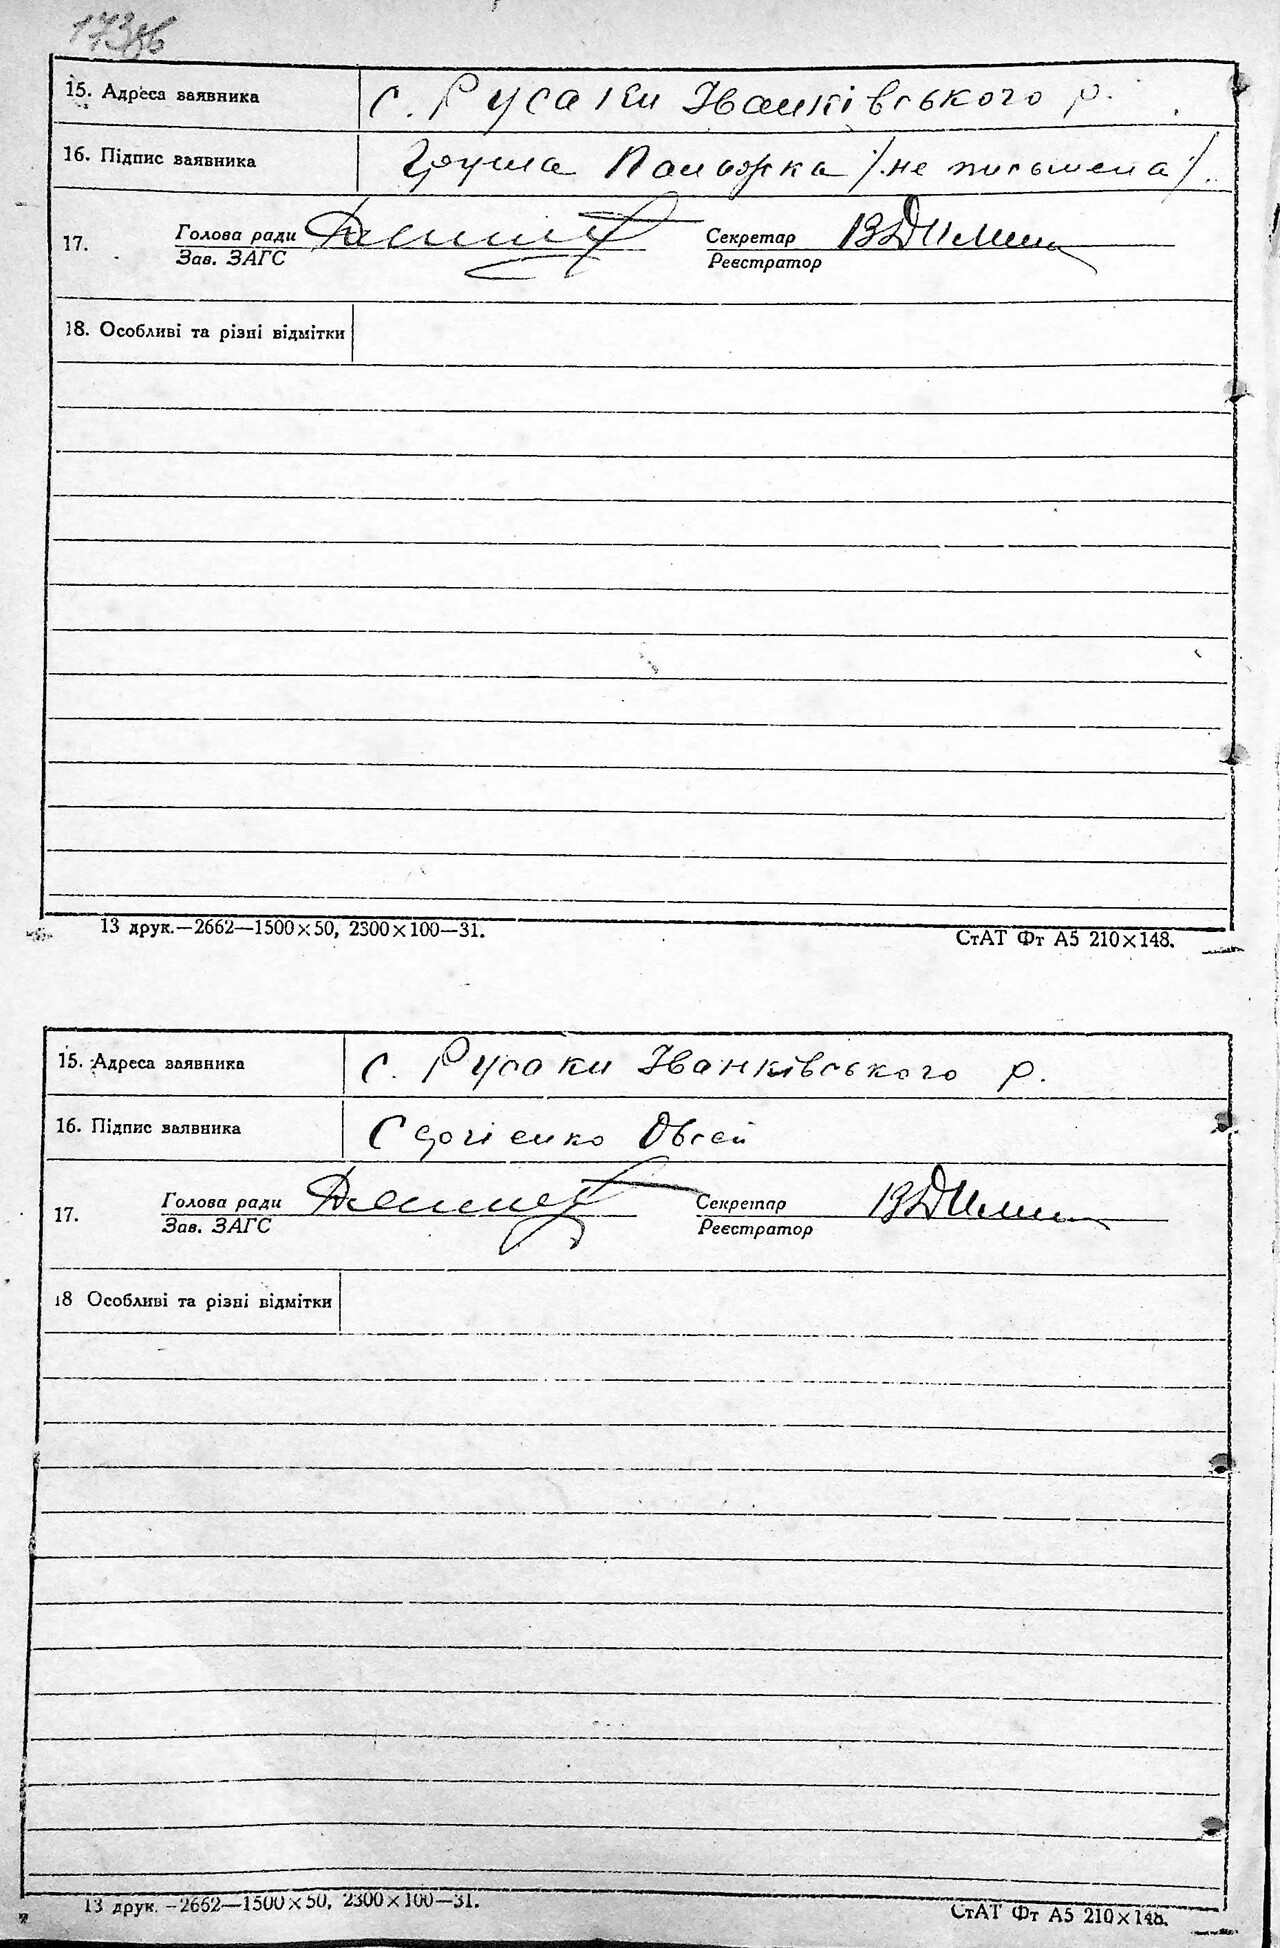 15. Адреса заявника с. Русаки Іванківського р.
16. Підпис заявника Груша Палажка /не письмена/.
17. Голова ради Секретар
Зав. ЗАГС Реєстратор
18. Особливі та різні відмітки
13 друк.—2662—1500×50, 2300×100—31. СтАТ Фт А5 210×148.
15. Адреса заявника с. Русаки Іванківського р.
16. Підпис заявника Сергієнко Овсей
17. Голова ради Секретар
Зав. ЗАГС Реєстратор
18 Особливі та різні відмітки
13 друк.—2662—1500×50, 2300×100—31. СтАТ Фт А5 210×148.